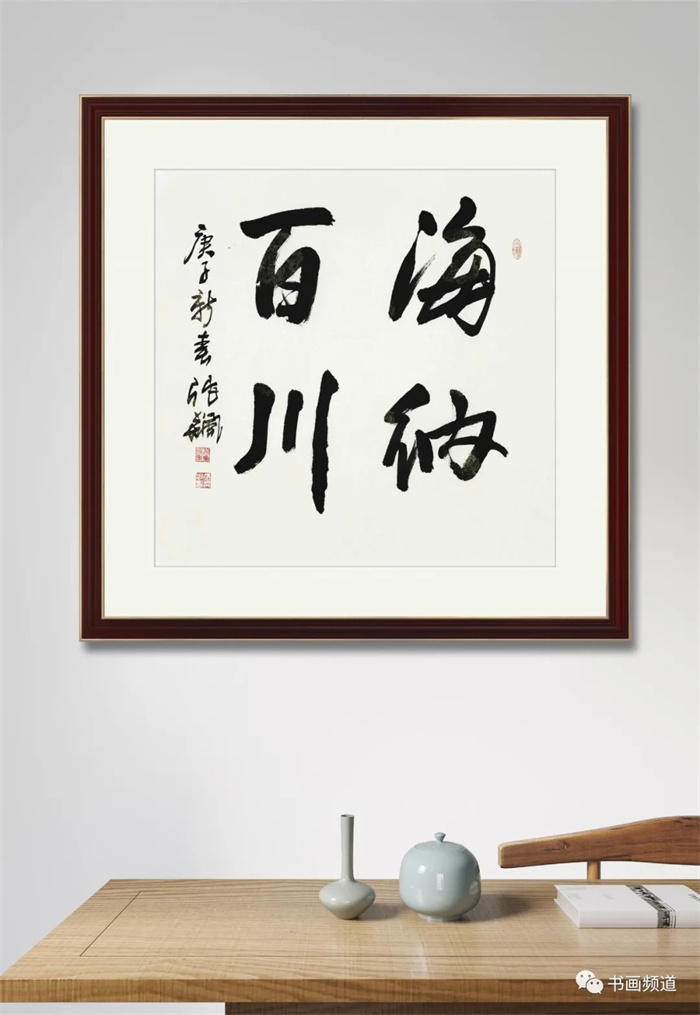 海纳
百川
庚子新春张
书画频道